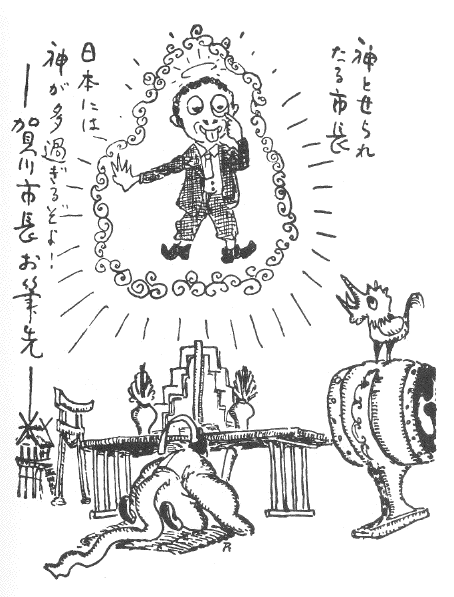 神とせられ
たる市長
日本には
神が多過ぎるぞよ!
―賀川市長お筆先―
R